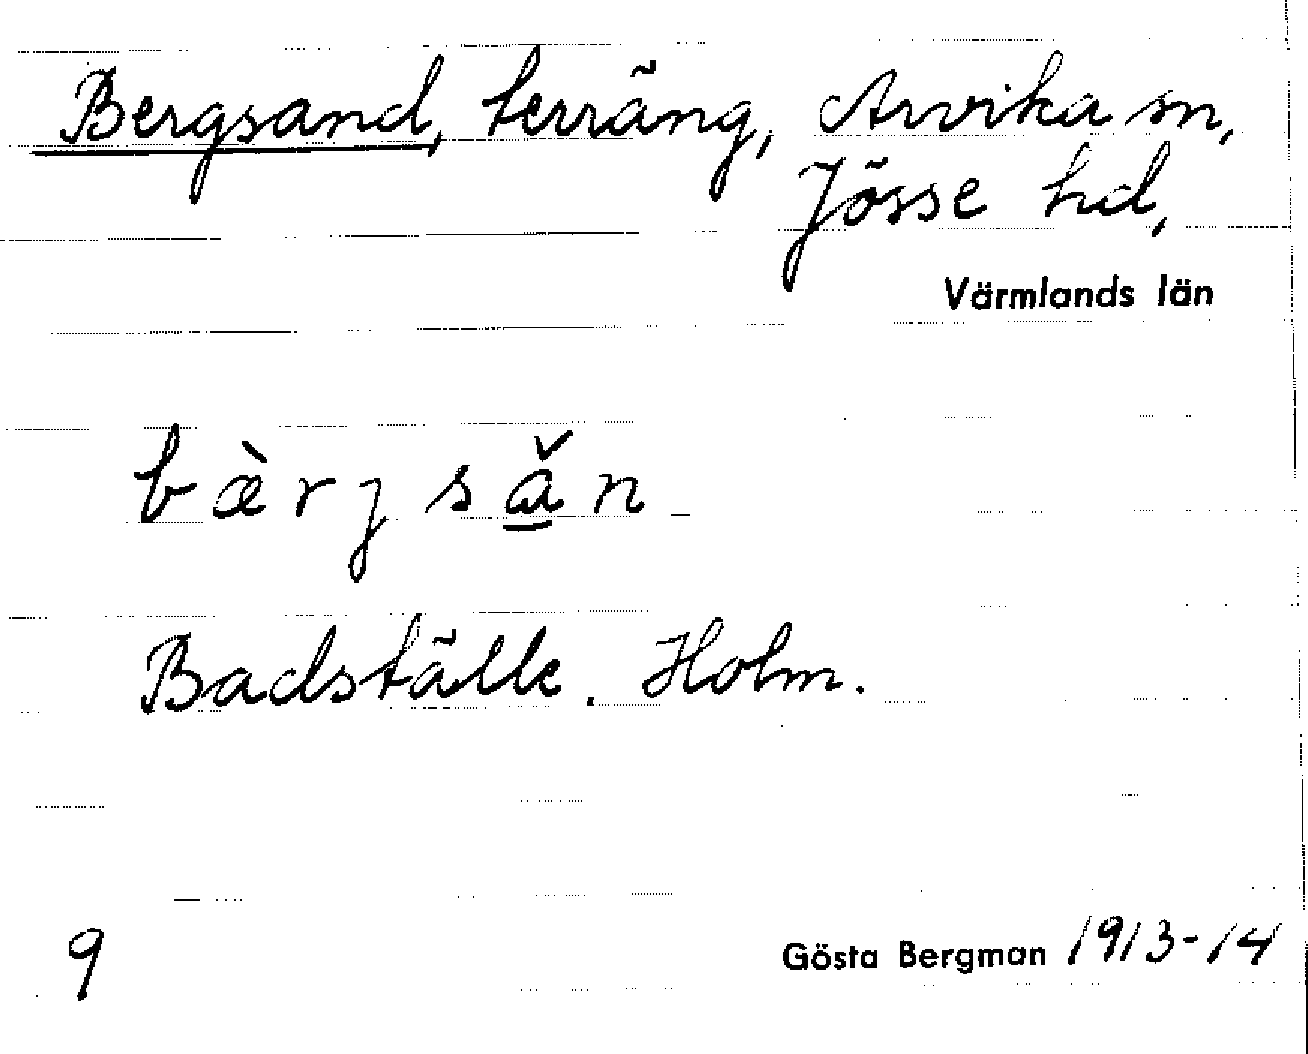 Bergsand, terräng, Arvika sn,
Jösse hd,
Värmlands län
bæ̀rjsǎ̱n
Badställe. Holm.
9
Gösta Bergman 1913-14